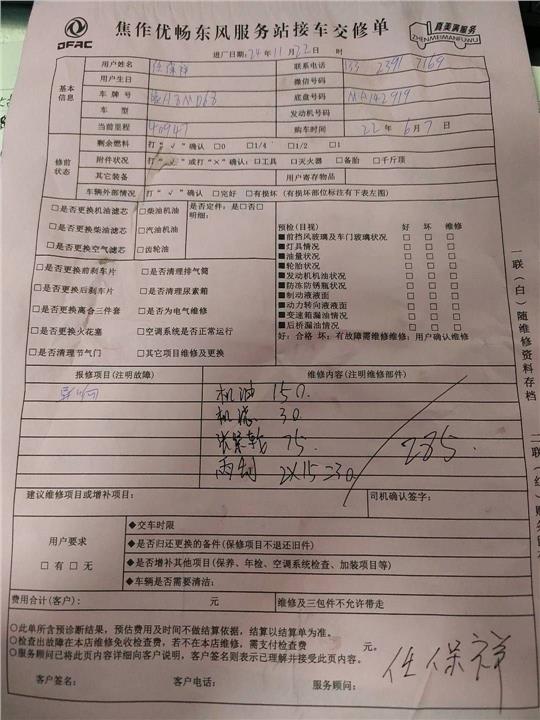 DFAC
焦作优畅东风服务站接车交修单
真美满服务
ZHENMEIMANFUWU
进厂日期: 24年 11月 22日 时
基本信息
用户姓名 任保祥 联系电话 133 2391 7169
用户生日 微信号码
车牌号 豫H8MD68 底盘号码 MA142919
车型 发动机号码
当前里程 40947 购车时间 22年 6月 7日
修前状态
剩余燃料 打“√”确认 □0 □1/4 □1/2 □1
附件状况 打“√”或打“×”确认:□工具 □灭火器 □备胎 □千斤顶
其它装备 用户寄存物品
车辆外部情况 打“√”确认 □完好 □有损坏(有损坏部位标注有下表左图)
□是否更换机油滤芯 □柴油机油 是否定件:是□否□
明细:
□是否更换柴油滤芯 □汽油机油
□是否更换空气滤芯 □齿轮油
□是否更换前刹车片 □是否清理排气筒
□是否更换后刹车片 □是否清理尿素箱
□是否更换离合三件套 □是否为电气维修
□是否更换火花塞 □空调系统是否正常运行
□是否清理节气门 □其它项目维修及更换
预检(目视) 好 坏 维修
■前挡风玻璃及车门玻璃状况 □ □ □
■灯具情况 □ □ □
■油量状况 □ □ □
■轮胎状况 □ □ □
■发动机机油状况 □ □ □
■防冻防锈瓶状况 □ □ □
■制动液液面 □ □ □
■动力转向液液面 □ □ □
■变速箱漏油情况 □ □ □
■后桥漏油情况 □ □ □
好:合格 坏:有故障需维修维修:用户确认维修
报修项目(注明故障) 维修内容(注明维修部件)
异响 机油 150.
机滤 30.
张紧轮 75.
285.
2×15=30.
建议维修项目或增补项目: 司机确认签字:
用户要求
□有 □无
◆交车时限
◆是否归还更换的备件(保修项目不退还旧件)
◆是否增补其他项目(保养、年检、空调系统检查、加装项目等)
◆车辆是否需要清洁:
费用合计(客户): 元 维修及三包件不允许带走
○此单所含预诊断结果,预估费用及时间不做结算依据,结算以结算单为准。
○检查出故障在本店维修免收检查费,若不在本店维修,需支付检查费 元。
○服务顾问已将此页内容详细向客户说明,客户签名则表示已理解并接受此页内容。
客户签名: 客户电话: 服务顾问: 任保祥
一联(白)随维修资料存档